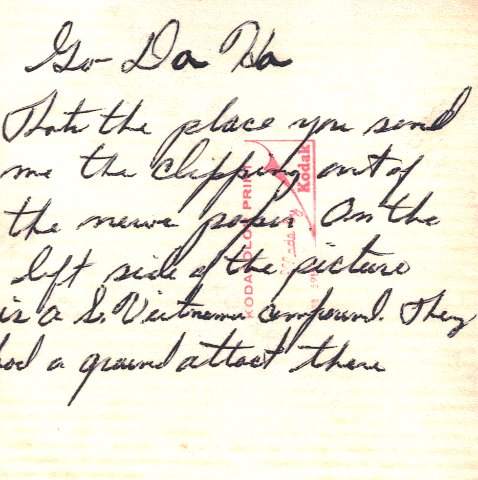 Go Da Ha
Thats the place you send
me the clipping out of
the newe paper. On the
left side of the picture
is a S. Vietnam compound. They
had a ground attact there
Kodak
KODACOLOR PRINT